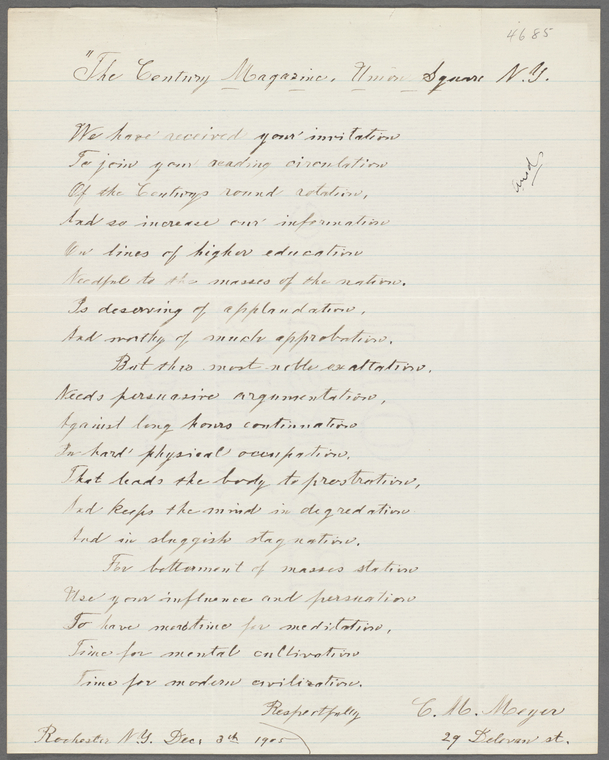 4685
"The Century Magazine, Union Square N.Y.
We have received your invitation
To join your reading circulation
Of the Centurys round rotation,
And so increase our information
On lines of higher education
Needful to the masses of the nation.
Is deserving of applaudation,
And worthy of much approbation.
But this most noble exaltation.
Needs persuasive argumentation,
Against long hours continuation
In hard physical occupation.
That leads the body to prostration,
And keeps the mind in degredation
And in sluggish stagnation.
For betterment of masses station
Use your influence and persuation
To have moretime for meditation,
Time for mental cultivation
Time for modern civilization.
Respectfully C. M. Meyer
Rochester N.Y. Dec. 3th 1905 29 Delovan st.